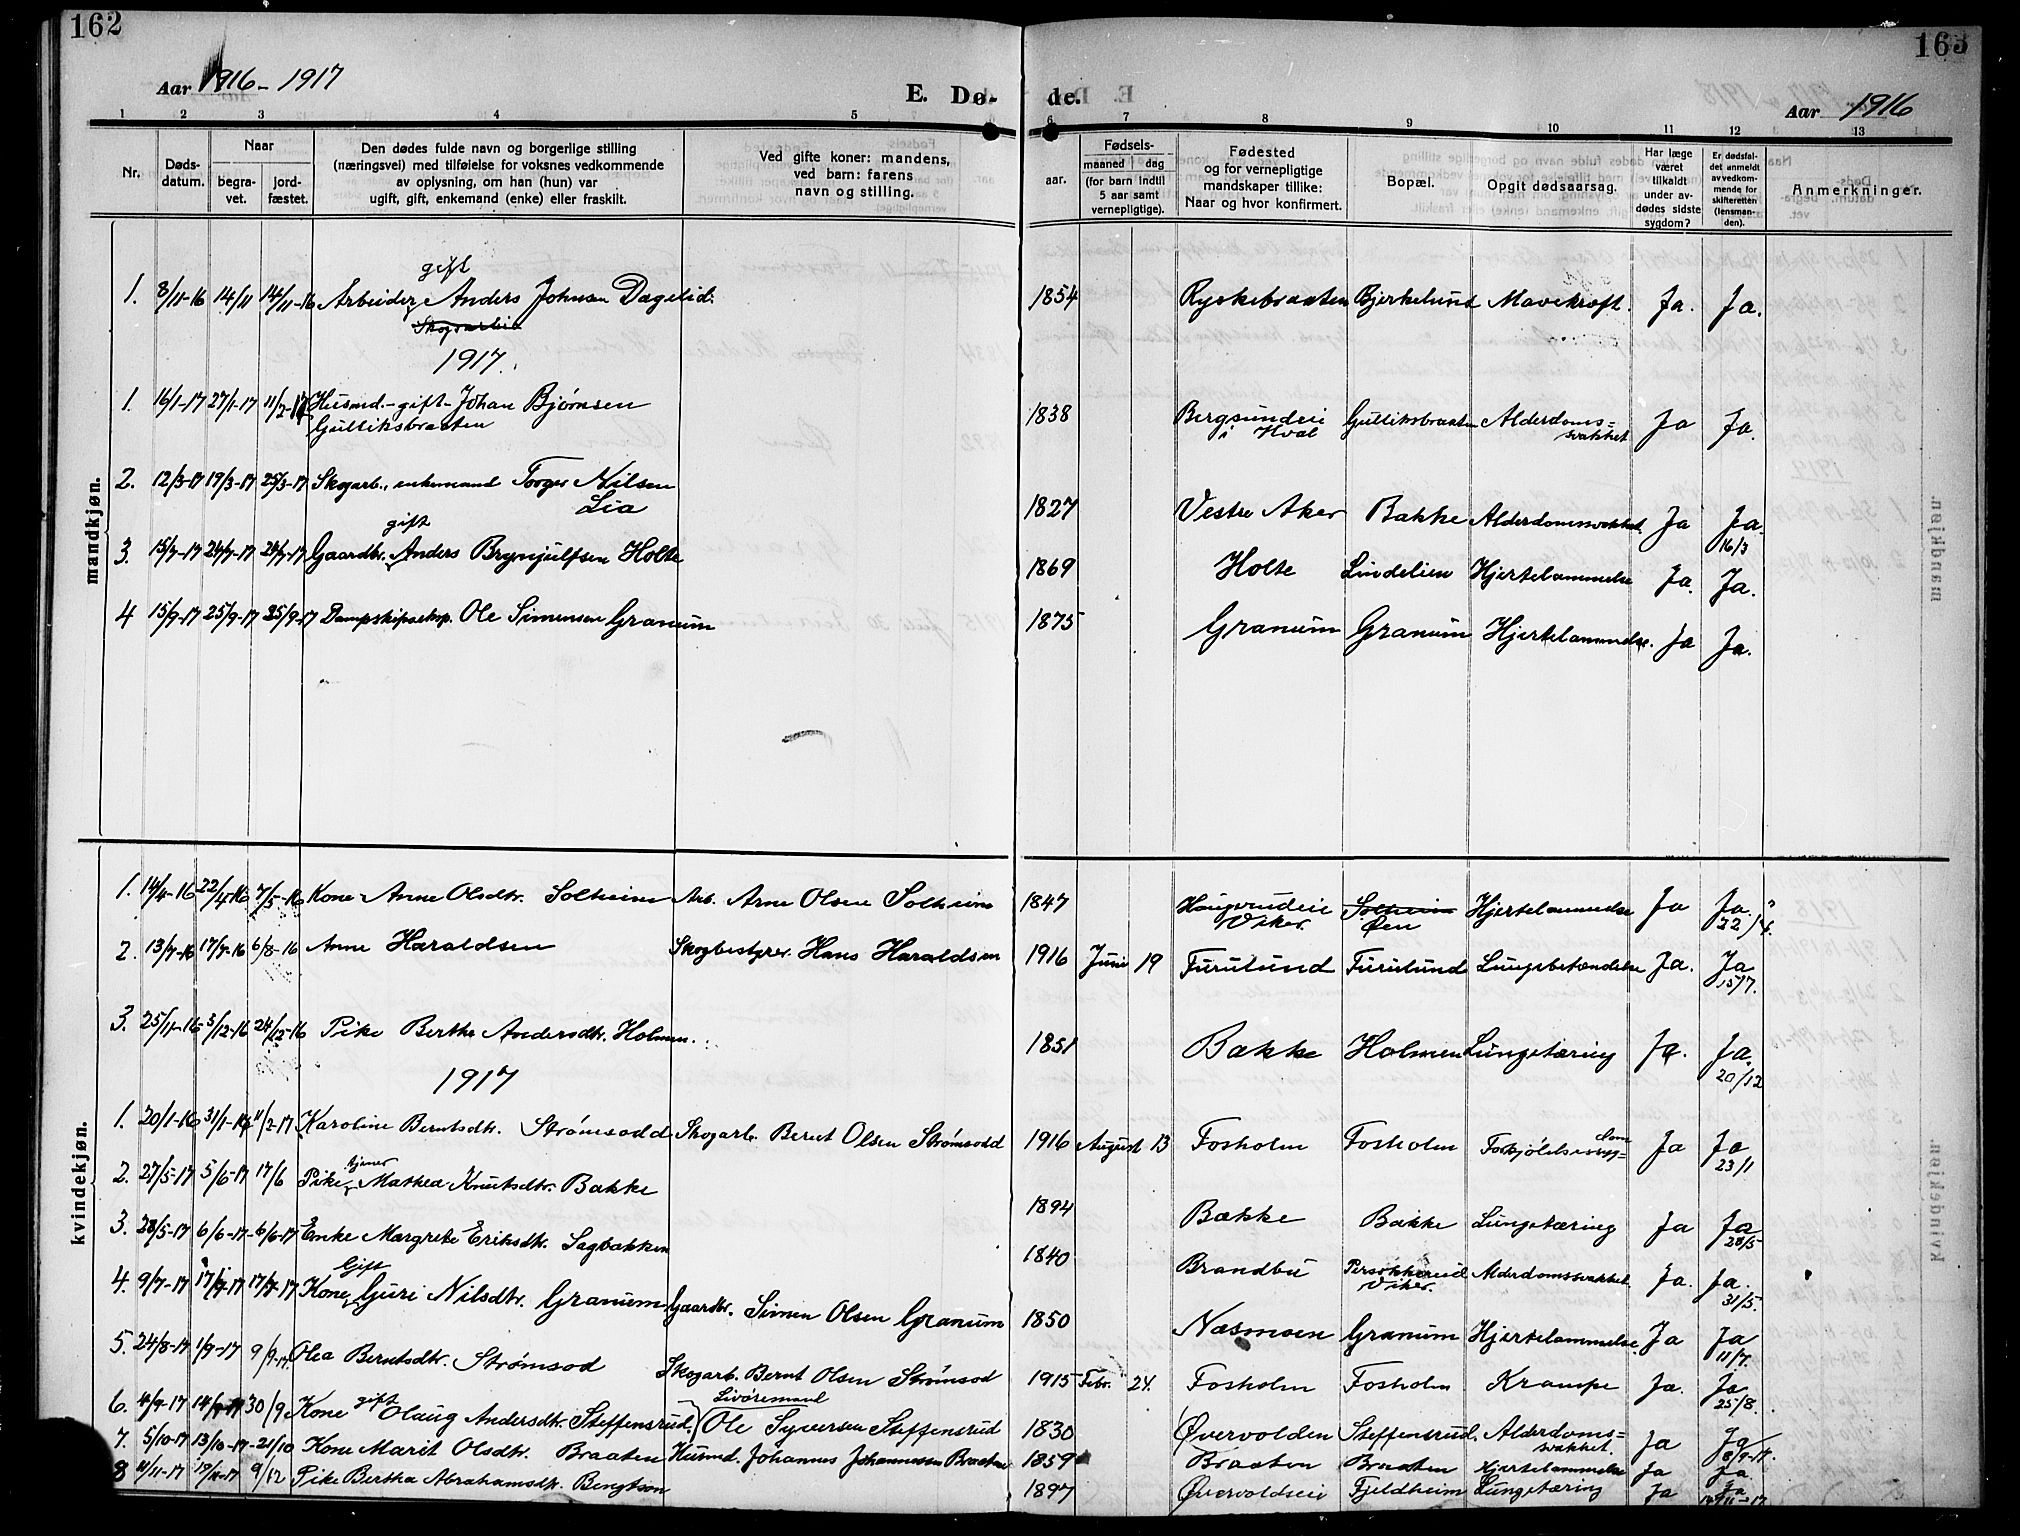 162
163
Aar 1916-1917
E. Dø-
de.
Aar 1916
1 2 3 4 5 6 7 8 9 10 11 12 13
Nr.
Døds-datum.
Naar
begra-vet.
jord-fæstet.
Den dødes fulde navn og borgerlige stilling
(næringsvei) med tilføielse for voksnes vedkommende
av oplysning, om han (hun) var
ugift, gift, enkemand (enke) eller fraskilt.
Ved gifte koner: mandens,
ved barn: farens
navn og stilling.
aar.
Fødsels-
maaned dag
(for barn indtil
5 aar samt
vernepligtige).
Fødested
og for vernepligtige
mandskaper tillike:
Naar og hvor konfirmert.
Bopæl.
Opgit dødsaarsag.
Har læge
været
tilkaldt
under av-
dødes sidste
sygdom?
Er dødsfal-
det anmeldt
av vedkom-
mende for
skifteretten
(lensman-
den).
Anmerkninger.
mandkjøn.
gift
1. 8/11-16 14/11 14/11-16 Arbeider Anders Johnsen Dagslid. 1854 Ryskebraaten Bjerkelund Mavekræft. Ja. Ja.
Skogsarbeid
1917.
1. 16/1-17 27/1-17 11/2-17 Husmd.-gift-Johan Bjørnsen 1838 Bergsundeie Gulliksbraaten Alderdoms= Ja Ja.
Gulliksbraaten i Hval svakhet
2. 12/3-17 19/3-17 25/3-17 Skogarb., enkemand Torger Nilsen
Lia 1827 Vestre Aker Bakke Alderdomssvakhet. Ja Ja.
16/3
gift
3. 15/7-17 24/7-17 24/7-17 Gaardbr. Anders Brynjulfsen Holte 1869 Holte Lindelien Hjertelammelse Ja. Ja.
4 15/9-17 25/9-17 25/9-17 Dampskipseksp. Ole Simensen Granum 1875 Granum Granum Hjertelammelse. Ja Ja.
kvindekjøn.
1. 14/4-16 22/4-16 7/5-16 Kone Anne Olsdtr. Solheim Arb. Arne Olsen Solheim 1847 Haugerudeie Solheim Hjertelammelse Ja Ja.
Viker. Øen 22/4.
2. 13/7-16 17/7-16 6/8-16 Anne Haraldsen Skogbestyrer Hans Haraldsen 1916 Juni 19 Furulund Furulund Lungebetændelse Ja. Ja
15/7.
3. 25/11-16 5/12-16 24/12-16 Pike Berthe Andersdtr. Holmen. 1851 Bakke Holmen Lungetæring Ja. Ja.
20/12
1917
1. 20/1-16 31/1-17 11/2-17 Karoline Berntsdtr. Strømsodd Skogarb. Bernt Olsen Strømsodd 1916 August 13 Fosholm Fosholm Ja Ja
23/1
tjener
2. 27/5-17 5/6-17 17/6 Pike Mathea Knutsdtr. Bakke 1894 Bakke Bakke Lungetæring Ja Ja
28/5
3. 28/5-17 6/6-17 6/6-17 Enke Margrete Eriksdtr. Sagbakken 1840 Brandbu Alderdomssvakhet Ja. Ja.
Viker. 31/5.
Gift
4. 9/7-17 17/7-17 17/7-17 Kone Guri Nilsdtr. Granum Gaardbr. Simen Olsen Granum 1850 Næsmoen Granum Hjertelammelse. Ja Ja
11/7.
5. 24/8-17 1/9-17 9/9-17 Olea Berntsdtr. Strømsod Skogarb. Bernt Olsen Strømsod 1915 Febr. 24. Fosholm Fosholm Krampe Ja. Ja
25/8.
gift Livøremand
6. 4/9-17 14/9-17 30/9 Kone Olaug Andersdtr. Steffensrud. Ole Syversen Steffensrud 1830 Øvervolden Steffensrud. Alderdoms= Ja Ja
svakhet. 8/9-17.
7. 5/10-17 13/10-17 21/10 Kone Marit Olsdtr. Braaten Husmd. Johannes Johannessen Braaten 1859 Braaten Braaten Hjertelammelse Ja Ja
8 11/11-17 19/11-17 9/12 Pike Bertha Abrahamsdtr. Bengtson 1897 Øvervoldseie Fjeldheim Lungetæring Ja Ja
14/11-17